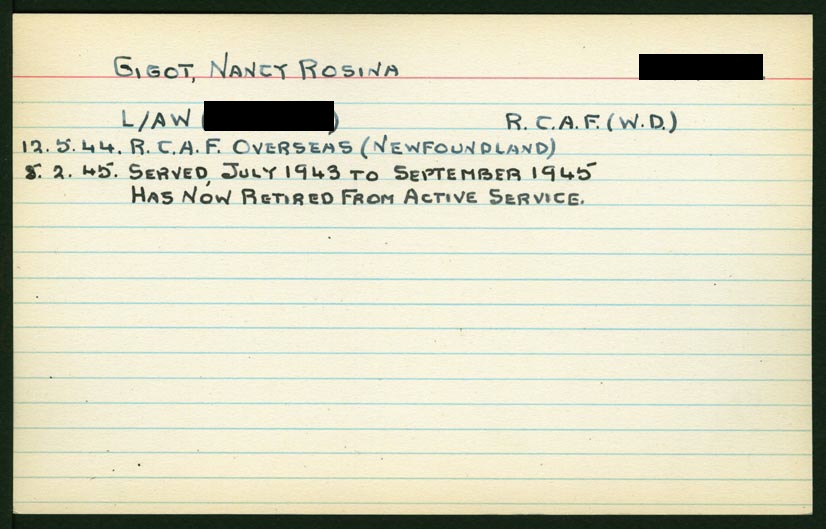 GIGOT, NANCY ROSINA
L/AW ( ) R.C.A.F. (W.D.)
12.5.44. R.C.A.F. OVERSEAS (NEWFOUNDLAND)
8.2.45. SERVED, JULY 1943 TO SEPTEMBER 1945
HAS NOW RETIRED FROM ACTIVE SERVICE.